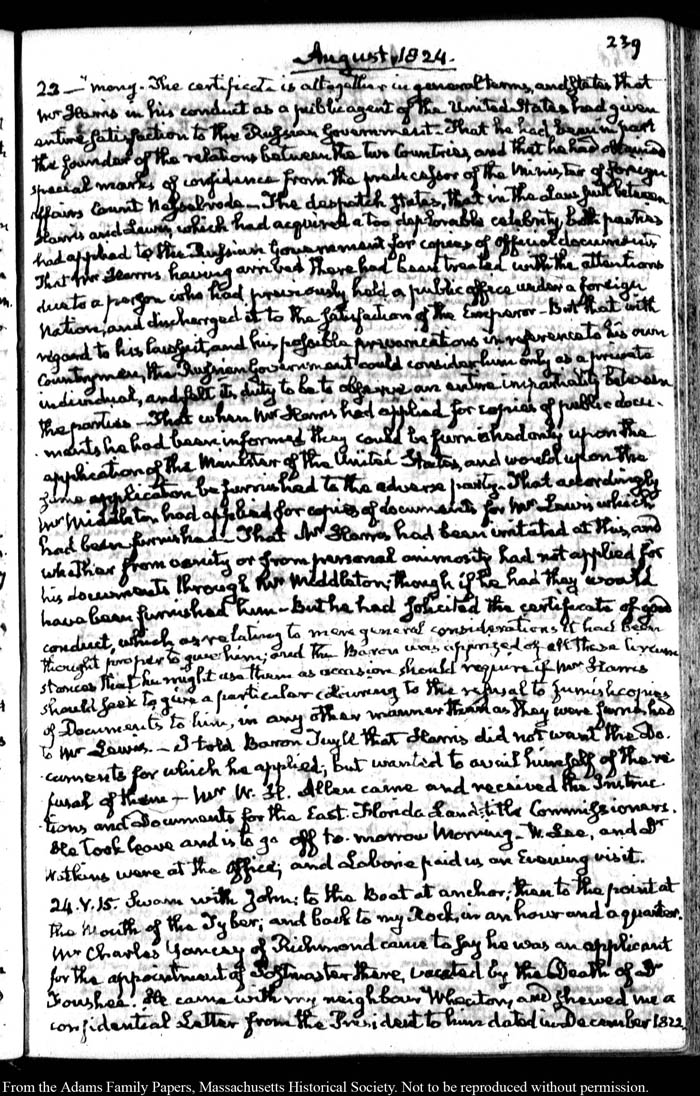 239
August 1824.
23 — "mony. The certificate is altogether in general terms, and states that
Mr Harris in his conduct as a public agent of the United States had given
entire satisfaction to the Russian Government. That he had been in part
the founder of the relations between the two Countries, and that he had obtained
special marks of confidence from the predecessor of the Minister of foreign
affairs Count Nesselrode — The despatch states, that in the Law suit between
Harris and Lewis, which had acquired a too deplorable celebrity, both parties
had applied to the Russian Government for copies of official documents
That Mr Harris having arrived there had been treated with the attentions
due to a person who had previously held a public office under a foreign
Nation, and discharged it to the satisfaction of the Emperor — But that with
regard to his lawsuit, and his possible prevarications in reference to his own
Countrymen, the Russian Government could consider him only as a private
individual, and felt its duty to be to observe an entire impartiality between
the parties — That when Mr Harris had applied for copies of public docu-
ments he had been informed they could be furnished only upon the
application of the Minister of the United States, and would upon the
same application be furnished to the adverse party. That accordingly
Mr Middleton had applied for copies of documents for Mr Lewis which
had been furnished — That Mr Harris had been irritated at this, and
whether from vanity or from personal animosity had not applied for
his documents through Mr Middleton; though if he had they would
have been furnished him — But he had solicited the certificate of good
conduct, which as relating to mere general considerations it had been
thought proper to give him; and the Baron was apprized of all these circum
stances that he might use them as occasion should require if Mr Harris
should seek to give a particular colouring to the refusal to furnish copies
of Documents to him, in any other manner than as they were furnished
to Mr Lewis. — I told Baron Tuyll that Harris did not want the Do-
cuments for which he applied; but wanted to avail himself of the re
fusal of them — Mr W. H. Allen came and received the Instruc
tions and Documents for the East Florida Land title Commissioners.
He took leave and is to go off to-morrow Morning. W. Lee, and Dr
Watkins were at the Office; and Laborie paid us an Evening visit.
24. V. 15. Swam with John: to the Boat at anchor; then to the point at
the Mouth of the Tyber; and back to my Rock, in an hour and a quarter.
Mr Charles Yancey of Richmond came to say he was an applicant
for the appointment of Postmaster there, vacated by the Death of Dr
Foushee. He came with my neighbour Wheaton, and shewed me a
confidential Letter from the President to him dated in December 1822
From the Adams Family Papers, Massachusetts Historical Society. Not to be reproduced without permission.